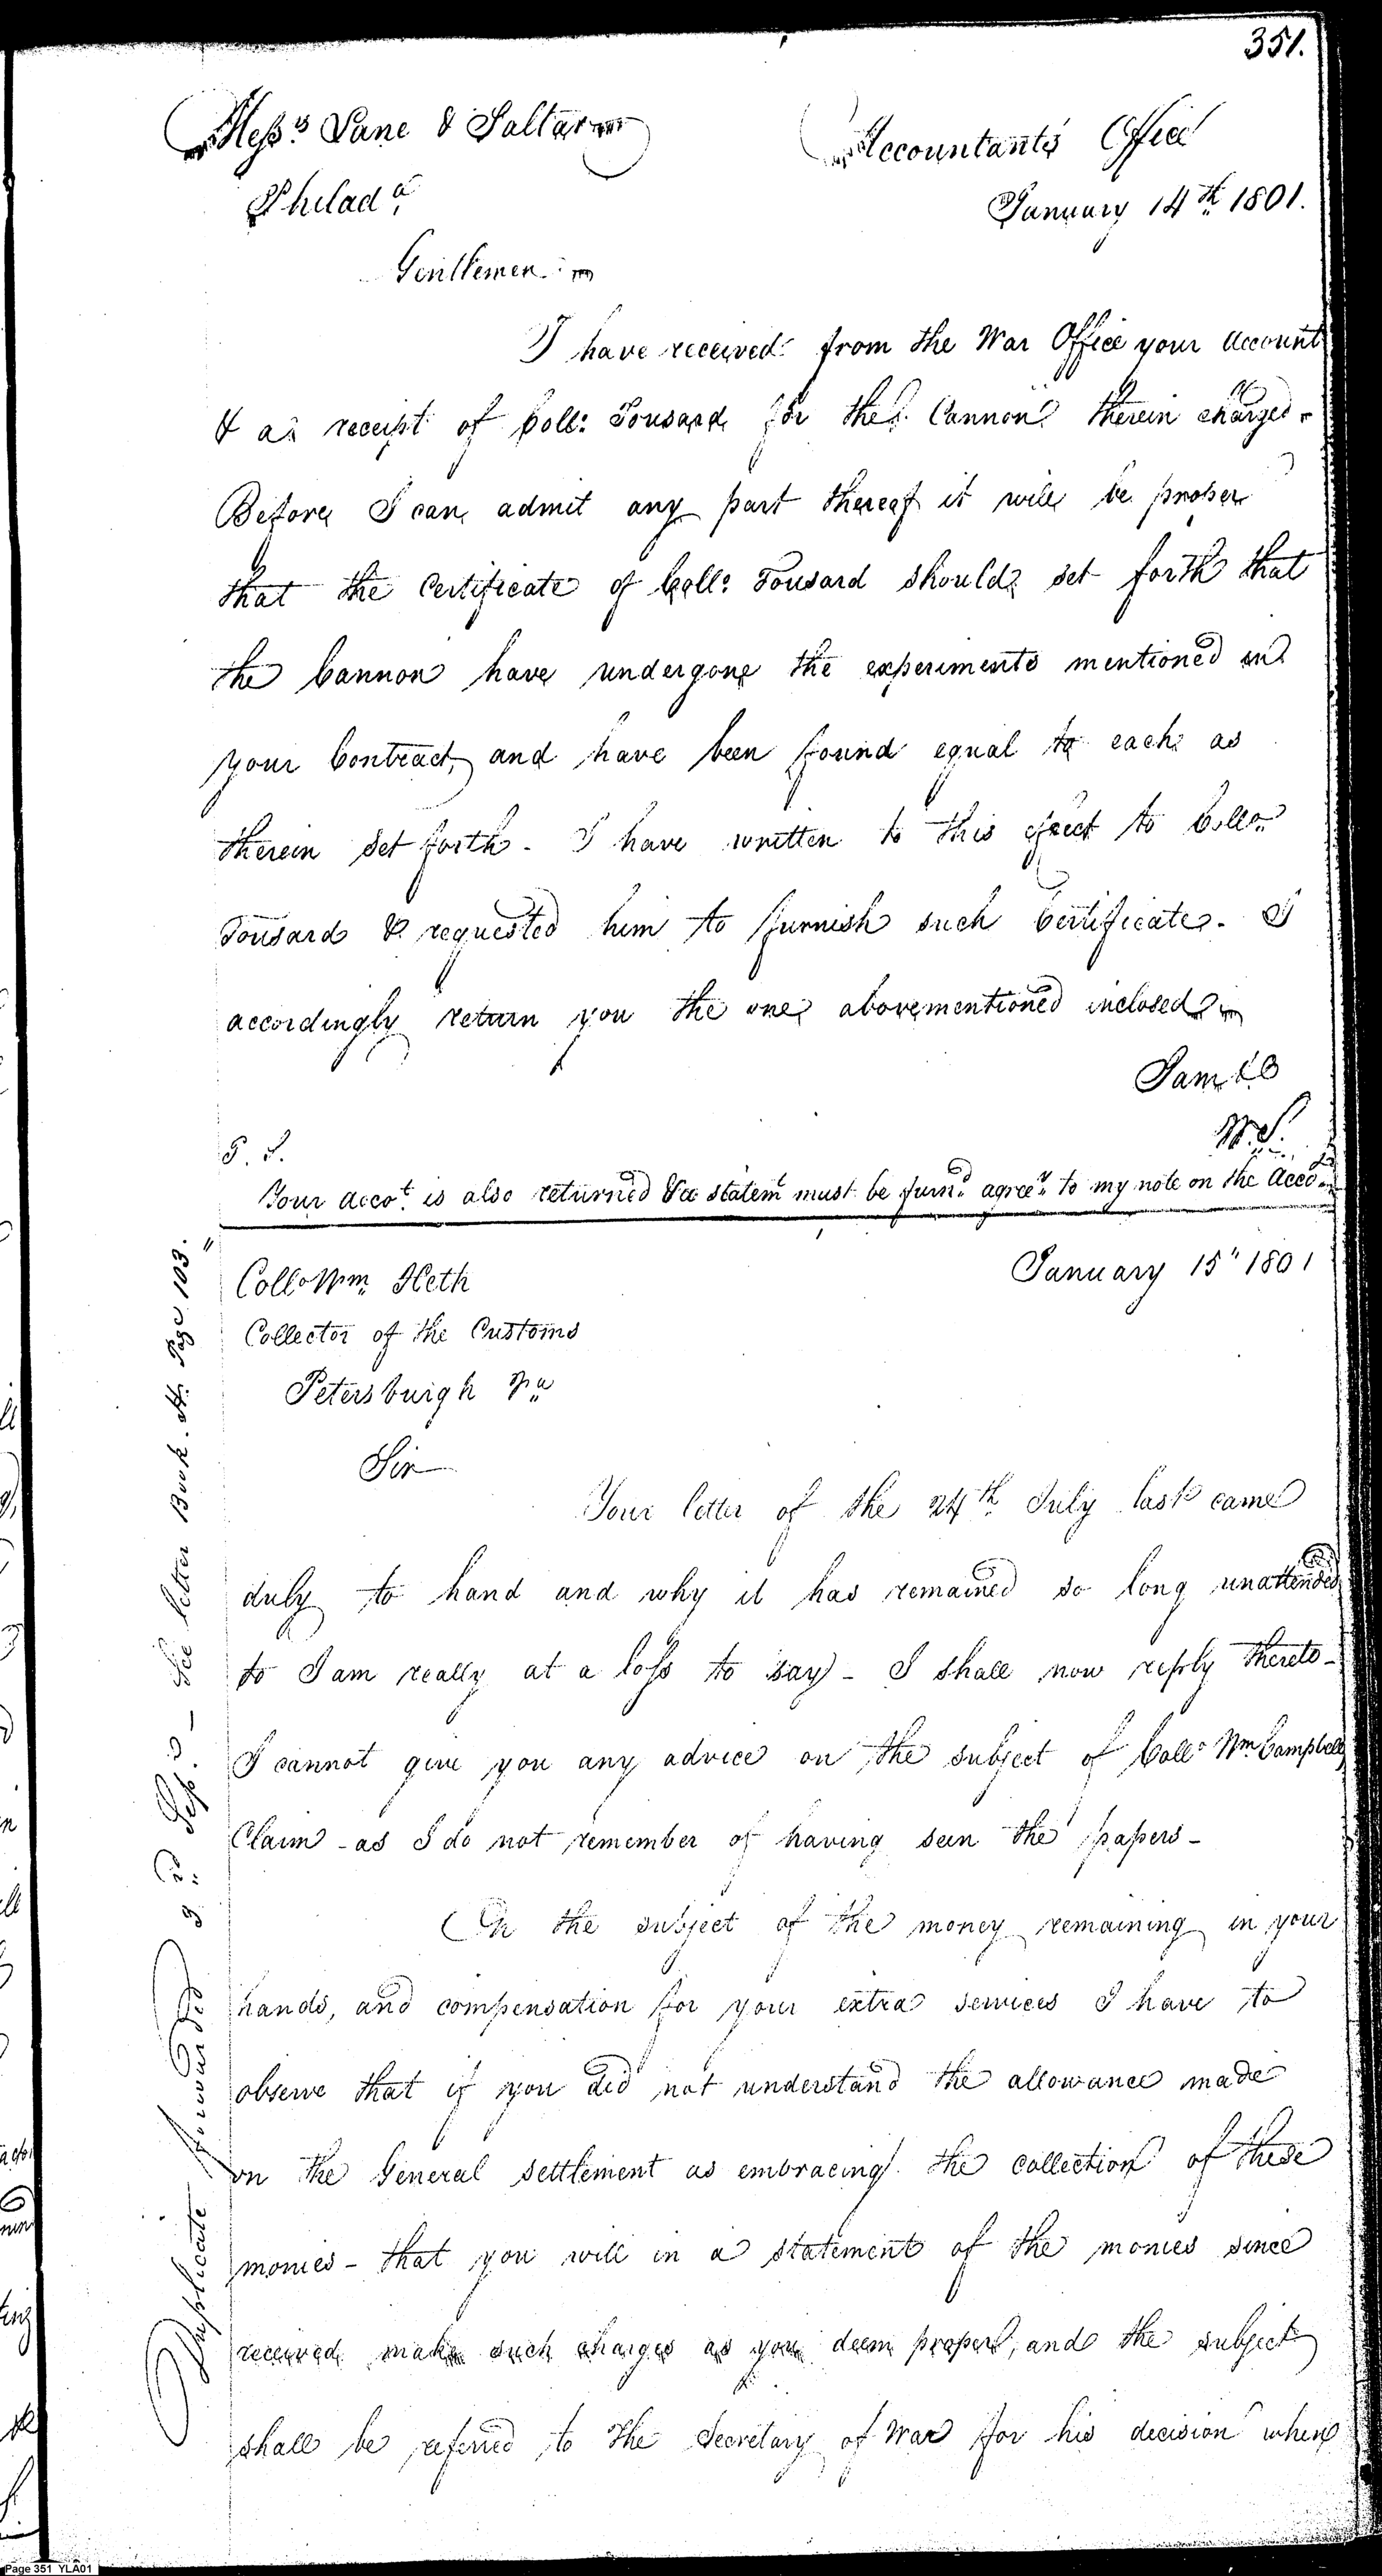 351.
Messrs Lane & Saltar
Accountants Office
Philada
January 14th 1801.
Gentlemen
I have received from the War Office your account
& a receipt of Coll: Tousard for the Cannon therein charged.
Before I can admit any part thereof it will be proper
that the Certificate of Coll: Tousard should set forth that
the Cannon have undergone the experiments mentioned in
your Contract, and have been found equal to each as
therein set forth. I have written to this effect to Collo
Tousard & requested him to furnish such Certificate. I
accordingly return you the one abovementioned inclosed
I am &c
W. S.
P. S.
Your accot is also returned & a statemt must be furnd agreey to my note on the Accot
January 15" 1801
Collo Wm Heth
Collector of the Customs
Petersburgh Va
Sir
Your letter of the 24th July last came
duly to hand and why it has remained so long unattended
to I am really at a loss to say - I shall now reply thereto -
I cannot give you any advice on the subject of Collo Wm Campbells
Claim - as I do not remember of having seen the papers -
On the subject of the money remaining in your
hands, and compensation for your extra services I have to
observe that if you did not understand the allowance made
on the General settlement as embracing the collection of these
monies - that you will in a statement of the monies since
received make such charges as you deem proper, and the subject
shall be referred to the Secretary of War for his decision when
Duplicate forwarded See letter Book . Page 103."
Page 351 YLA01